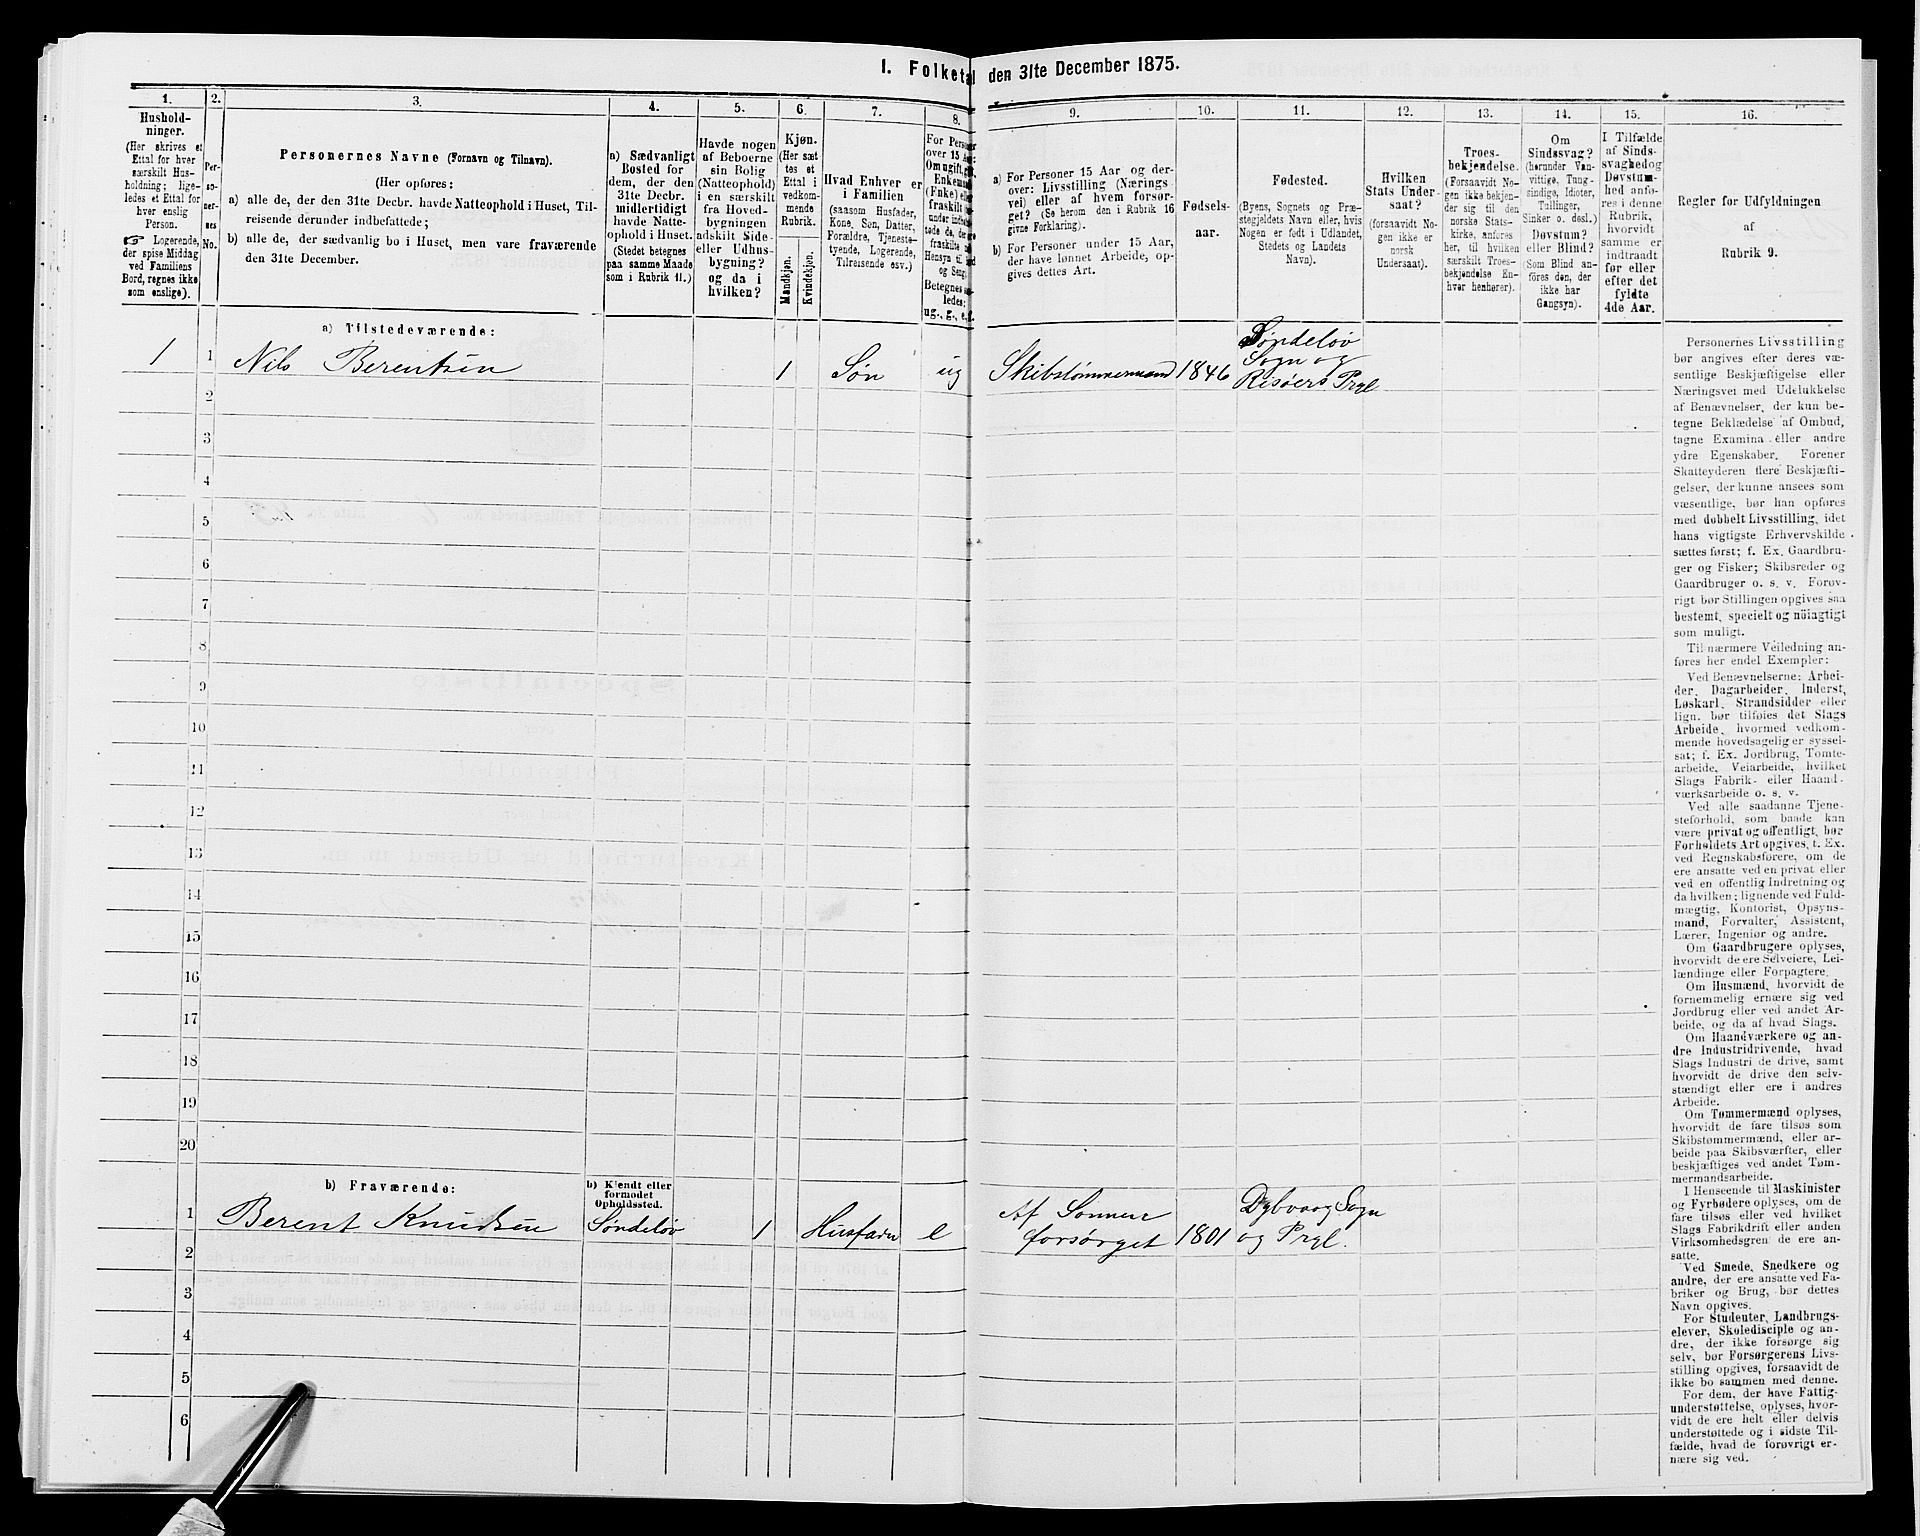 I. Folketal den 31te December 1875.
1.
Hushold-
ninger.
(Her skrives et
Ettal for hver
særskilt Hus-
holdning; lige-
ledes et Ettal for
hver enslig
Person.
☞ Logerende,
der spise Middag
ved Familiens
Bord, regnes ikke
som enslige).
2.
Per-
so-
ner-
nes
No.
3.
Personernes Navne (Fornavn og Tilnavn).
(Her opføres:
a) alle de, der den 31te Decbr. havde Natteophold i Huset, Til-
reisende derunder indbefattede;
b) alle de, der sædvanlig bo i Huset, men vare fraværende
den 31te December.
4.
a) Sædvanligt
Bosted for
dem, der den
31te Decbr.
midlertidigt
havde Natte-
ophold i Huset.
(Stedet betegnes
paa samme Maade
som i Rubrik 11.)
5.
Havde nogen
af Beboerne
sin Bolig
(Natteophold)
i en særskilt
fra Hoved-
bygningen
adskilt Side-
eller Udhus-
bygning?
og da i
hvilken?
6.
Kjøn.
(Her sæt
tes et
Ettal i
vedkom-
mende
Rubrik.
Mandkjøn.
Kvindekjøn.
7.
Hvad Enhver er
i Familien
(saasom Husfader,
Kone, Søn, Datter,
Forældre, Tjeneste-
tyende, Logerende,
Tilreisende osv.)
8.
9.
a) For Personer 15 Aar og der-
over: Livsstilling (Nærings
vei) eller af hvem forsør-
get? (Se herom den i Rubrik 16
givne Forklaring).
b) For Personer under 15 Aar,
der have lønnet Arbeide, op-
gives dettes Art.
10.
Fødsels-
aar.
11.
Fødested.
(Byens, Sognets og Præ-
stegjeldets Navn eller, hvis
Nogen er født i Udlandet,
Stedets og Landets
Navn).
12.
Hvilken
Stats Under-
saat?
(forsaavidt No-
gen ikke er
norsk
Undersaat).
13.
Troes-
bekjendelse.
(Forsaavidt No-
gen ikke bekjen-
der sig til den
norske Stats-
kirke, anføres
her, til hvilken
særskilt Troes-
bekjendelse En-
hver henhører).
14.
Om
Sindssvag?
(herunder Van-
vittige, Tung-
sindige, Idioter,
Tullinger,
Sinker o. desl.)
Døvstum?
eller Blind?
(Som Blind an-
føres den, der
ikke har
Gangsyn).
15.
I Tilfælde
af Sinds-
svaghed og
Døvstum-
hed anfø-
res i denne
Rubrik,
hvorvidt
samme er
indtraadt
før eller
efter det
fyldte
4de Aar.
16.
Regler for Udfyldningen
af
Rubrik 9.
a) Tilstedeværende:
1 1 Nils Berentsen 1 Søn ug Skibstømmermand 1846 Søndeløv
Sogn og
Risøers Prgl
2
3
4
5
6
7
8
9
10
11
12
13
14
15
16
17
18
19
20
b) Fraværende:
b) Kjendt eller
formodet
Opholdssted.
1 Berent Knudsen Søndeløv 1 Husfader e Af Sønnen
forsørget 1801 Dybvaag Sogn
og Prgl.
2
3
4
5
6
Personernes Livsstilling
bør angives efter deres væ-
sentlige Beskjæftigelse eller
Næringsvei med Udelukkelse
af Benævnelser, der kun be-
tegne Beklædelse af Ombud,
tagne Examina eller andre
ydre Egenskaber. Forener
Skatteyderen flere Beskjæfti-
gelser, der kunne ansees som
væsentlige, bør han opføres
med dobbelt Livsstilling, idet
hans vigtigste Erhvervskilde
sættes først; f. Ex. Gaardbru-
ger og Fisker; Skibsreder og
Gaardbruger o. s. v. Forøv-
rigt bør Stillingen opgives saa
bestemt, specielt og nöiagtigt
som muligt.
Til nærmere Veiledning an-
føres her endel Exempler:
Ved Benævnelserne: Arbei-
der, Dagarbeider, Inderst,
Løskarl, Strandsidder eller
lign. bør tilføies det Slags
Arbeide, hvormed vedkom-
mende hovedsagelig er syssel-
sat; f. Ex. Jordbrug, Tomte-
arbeide, Veiarbeide, hvilket
Slags Fabrik- eller Haand-
værksarbeide o. s. v.
Ved alle saadanne Tjene-
steforhold, som baade kan
være privat og offentligt, bør
Forholdets Art opgives, f. Ex.
ved Regnskabsførere, om de
ere ansatte ved en privat eller
ved en offentlig Indretning og
da hvilken; lignende ved Fuld-
mægtig, Kontorist, Opsyns-
mand, Forvalter, Assistent,
Lærer, Ingeniør og andre.
Om Gaardbrugere oplyses,
hvorvidt de ere Selveiere, Lei-
lændinge eller Forpagtere.
Om Husmænd, hvorvidt de
fornemmelig ernære sig ved
Jordbrug eller ved andet Ar-
beide, og da af hvad Slags.
Om Haandværkere og an-
dre Industridrivende, hvad
Slags Industri de drive, samt
hvorvidt de drive den selv-
stændigt eller ere i andres
Arbeide.
Om Tømmermænd oplyses,
hvorvidt de fare tilsøs som
Skibstømmermænd, eller ar-
beide paa Skibsværfter, eller
beskjæftiges ved andet Tøm-
mermandsarbeide.
I Henseende til Maskinister
og Fyrbødere oplyses, om de
fare tilsøs eller ved hvilket
Slags Fabrikdrift eller anden
Virksomhedsgren de ere an-
satte.
Ved Smede, Snedkere og
andre, der ere ansatte ved Fa-
briker og Brug, bør dettes
Navn opgives.
For Studenter, Landbrugs-
elever, Skoledisciple og an-
dre, der ikke forsørge sig
selv, bør Forsørgerens Livs-
stilling opgives, forsaavidt de
ikke bo sammen med denne.
For dem, der have Fattig-
understøttelse, oplyses, hvor-
vidt de ere helt eller delvis
understøttede og i sidste Til-
fælde, hvad de forøvrigt er-
nære sig ved.